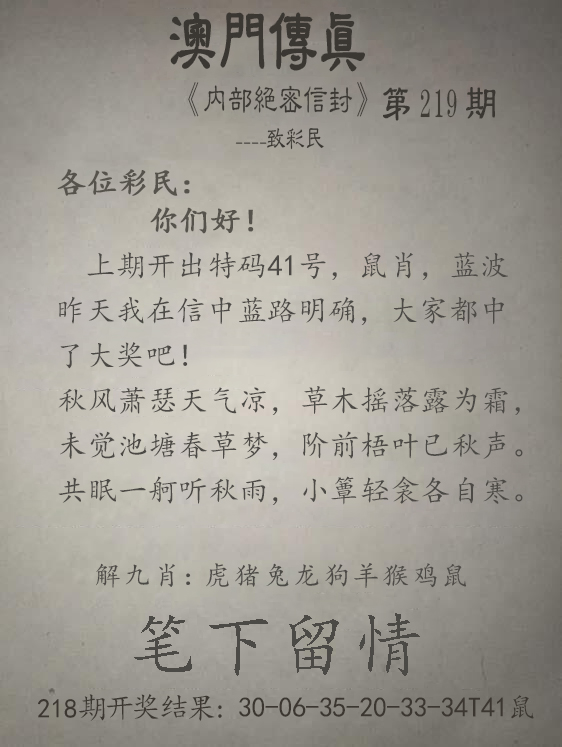 澳門傳眞
《内部絕密信封》第219期
----致彩民
各位彩民：
你们好！
上期开出特码41号，鼠肖，蓝波
昨天我在信中蓝路明确，大家都中
了大奖吧！
秋风萧瑟天气凉，草木摇落露为霜，
未觉池塘春草梦，阶前梧叶已秋声。
共眠一舸听秋雨，小簟轻衾各自寒。
解九肖：虎猪兔龙狗羊猴鸡鼠
笔下留情
218期开奖结果：30-06-35-20-33-34T41鼠